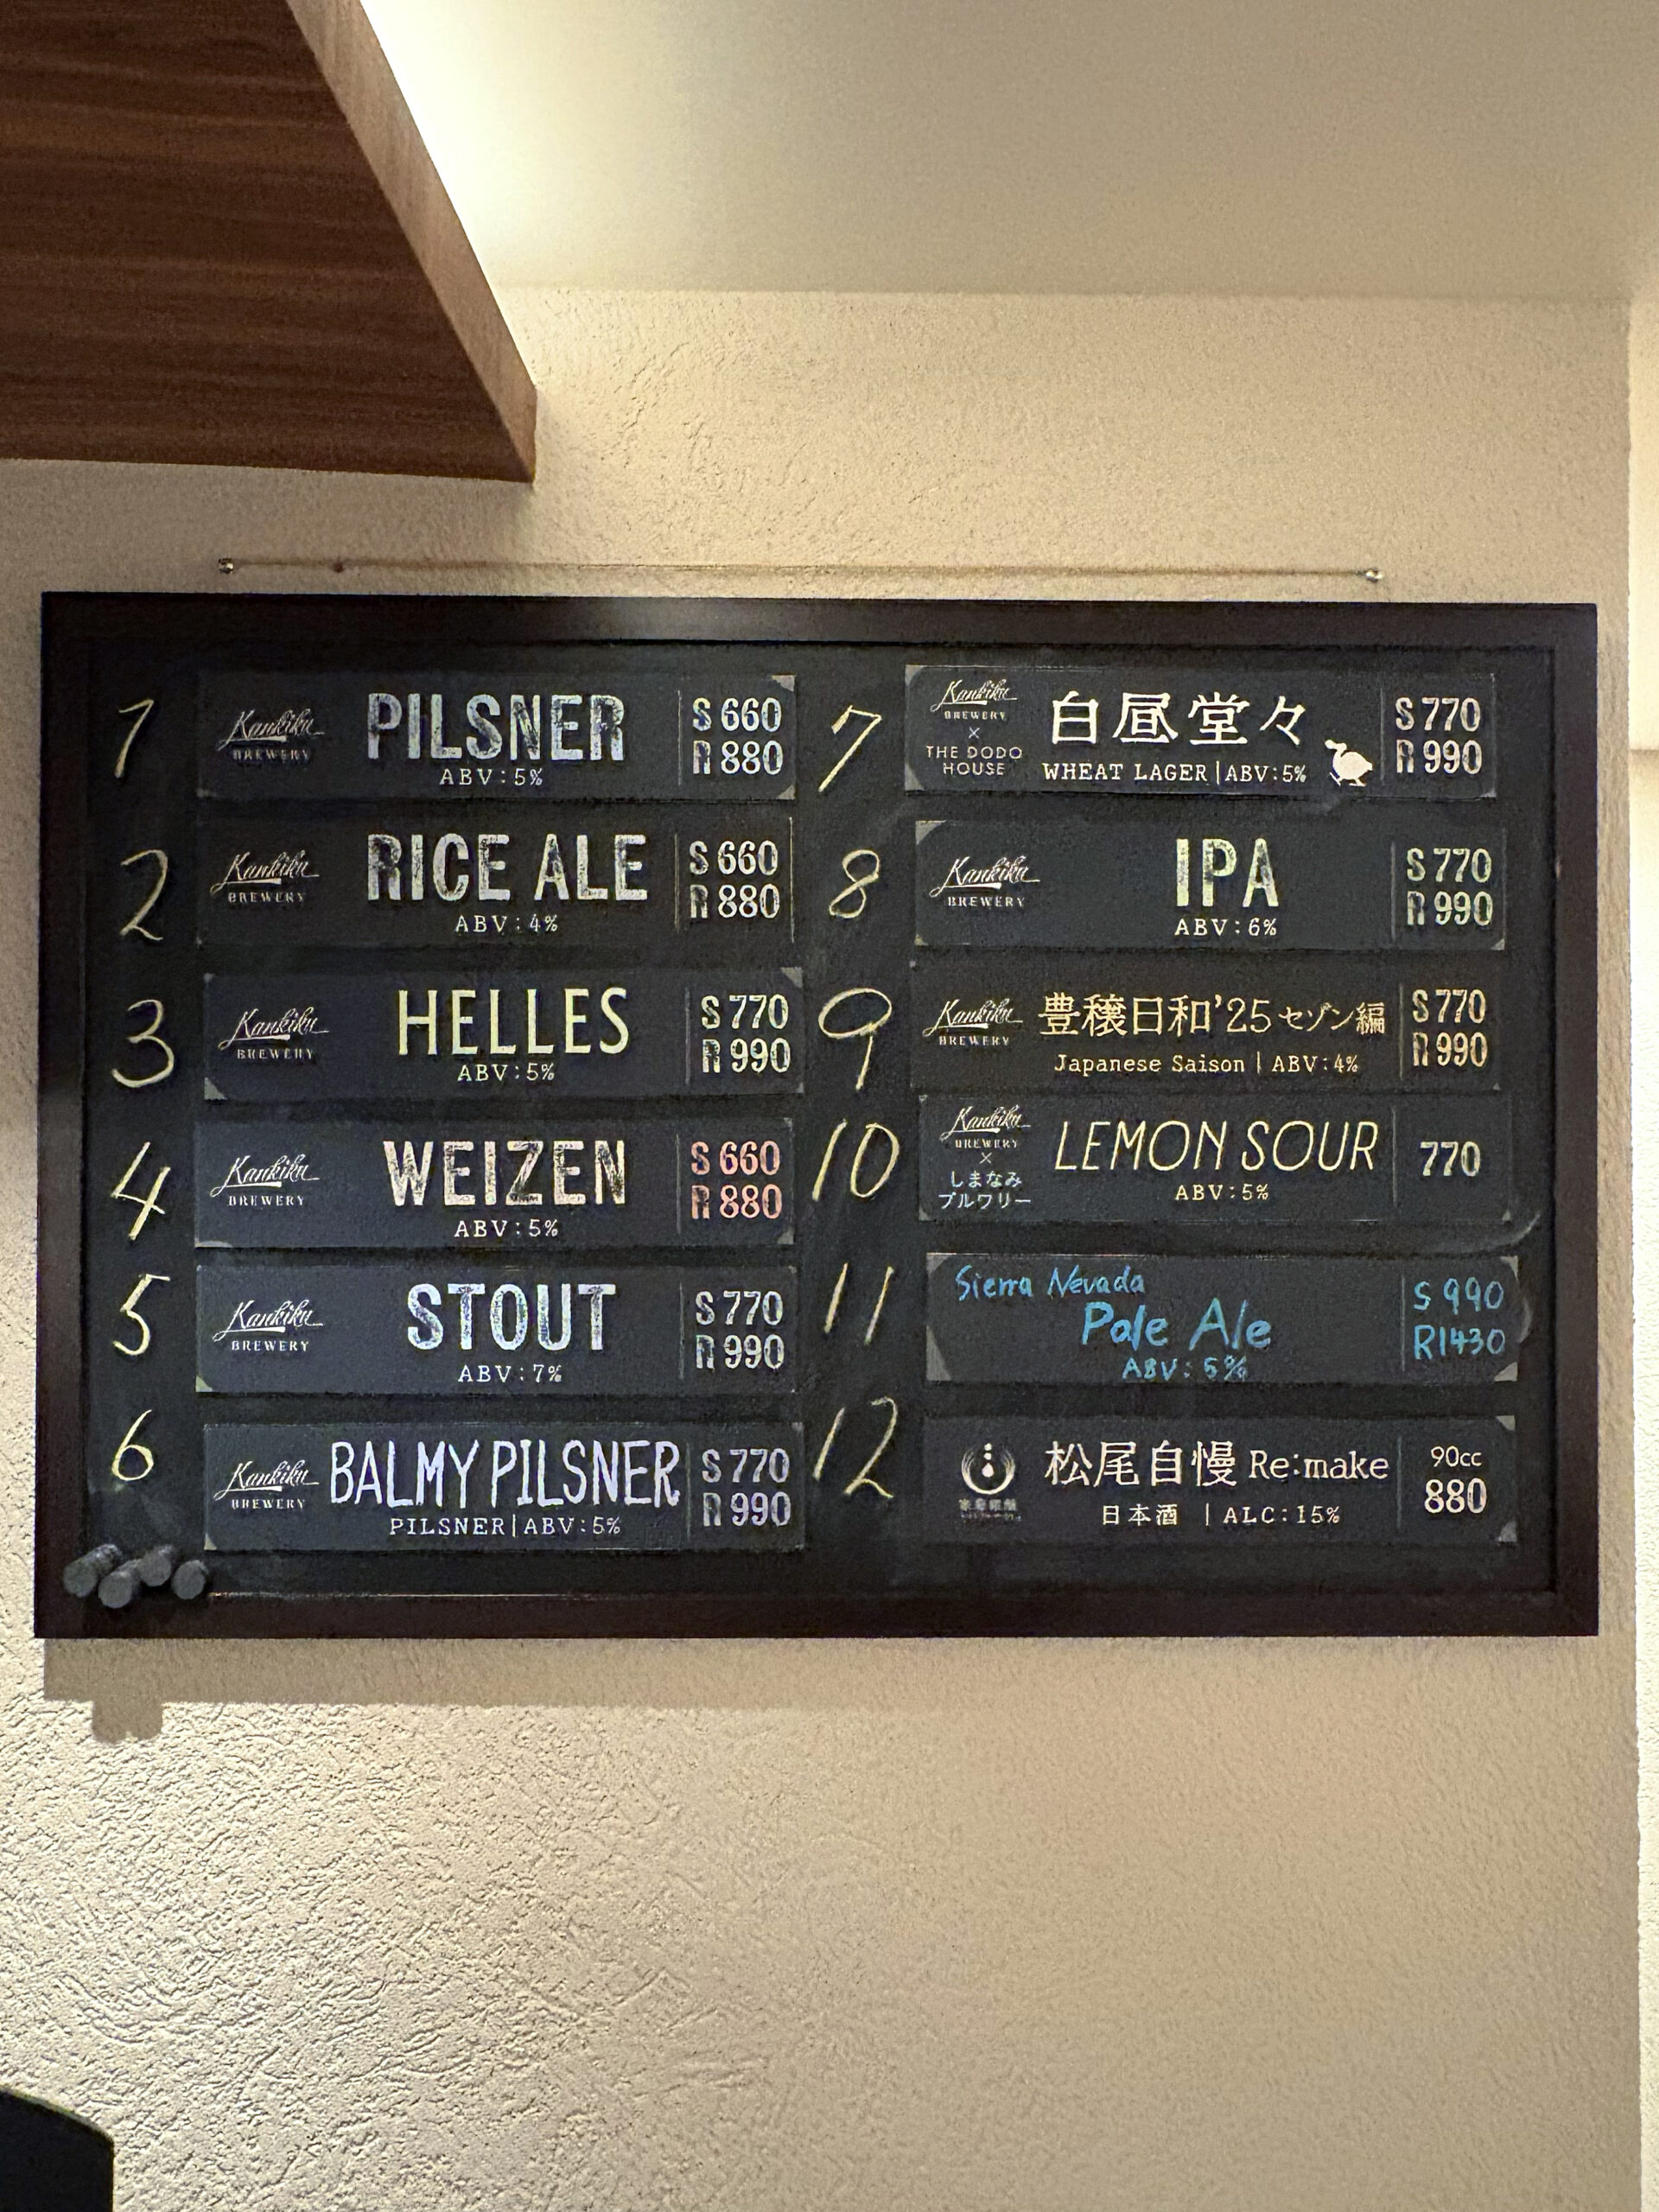 1
Kankiku
BREWERY
PILSNER
ABV:5%
S 660
R 880
2
Kankiku
BREWERY
RICE ALE
ABV:4%
S 660
R 880
3
Kankiku
BREWERY
HELLES
ABV:5%
S 770
R 990
4
Kankiku
BREWERY
WEIZEN
ABV:5%
S 660
R 880
5
Kankiku
BREWERY
STOUT
ABV:7%
S 770
R 990
6
Kankiku
BREWERY
BALMY PILSNER
PILSNER|ABV:5%
S 770
R 990
7
Kankiku
BREWERY
×
THE DODO
HOUSE
白昼堂々
WHEAT LAGER|ABV:5%
S 770
R 990
8
Kankiku
BREWERY
IPA
ABV:6%
S 770
R 990
9
Kankiku
BREWERY
豊穣日和'25 セゾン編
Japanese Saison | ABV:4%
S 770
R 990
10
Kankiku
BREWERY
×
しまなみ
ブルワリー
LEMON SOUR
ABV:5%
770
11
Sierra Nevada
Pale Ale
ABV:5%
S 990
R1430
12
松尾自慢 Re:make
日本酒 | ALC:15%
90cc
880